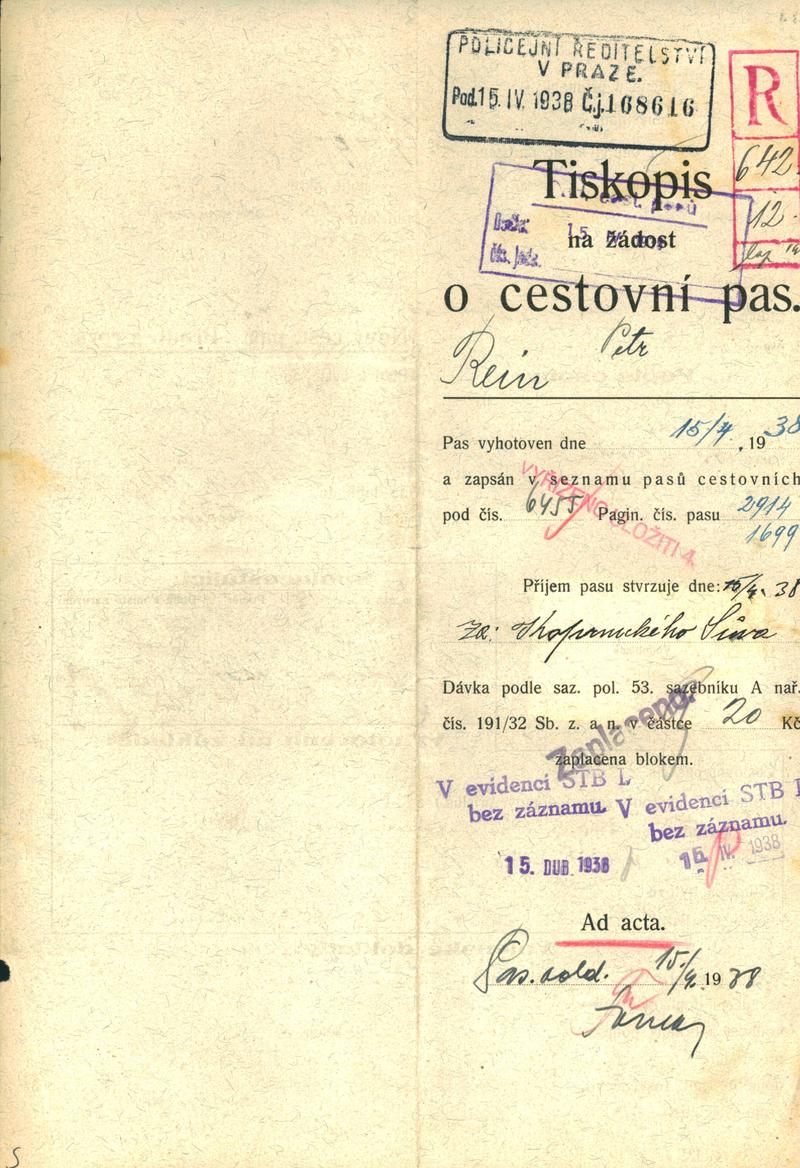 POLICEJNÍ ŘEDITELSTVÍ
V PRAZE.
Pod. 15. IV. 1938 Č.j. 168616
R
642
12
Tiskopis
na žádost
o cestovní pas.
Petr
Rein
Pas vyhotoven dne 15/4, 1938
a zapsán v seznamu pasů cestovních
pod čís. 6455 Pagin. čís. pasu 2914
1699
VYŘÍZENO ULOŽITI 4.
Příjem pasu stvrzuje dne: 15/4. 38
za:
Dávka podle saz. pol. 53. sazebníku A nař.
čís. 191/32 Sb. z. a n. v částce 20 Kč
zaplacena blokem.
Zaplaceno.
V evidenci STB I.
bez záznamu.
V evidenci STB I
bez záznamu.
15. DUB. 1938
15. IV. 1938
Ad acta.
Pas. odd. 15./4. 1938